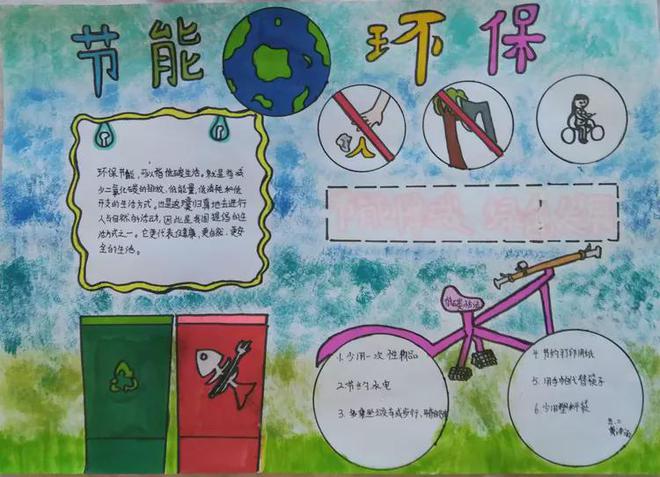 节能 环保
环保节能，可以指低碳生活。就是指减
少二氧化碳的排放，低能量、低消耗和低
开支的生活方式。也是返璞归真地去进行
人与自然的活动，因此是我国提倡的生
活方式之一。它更代表健康、更自然、更安
全的生活。
低碳生活
1.少用一次性制品
2.节约水电
3.
4.节约打印用纸
5.用手帕代替
6.少用塑料袋